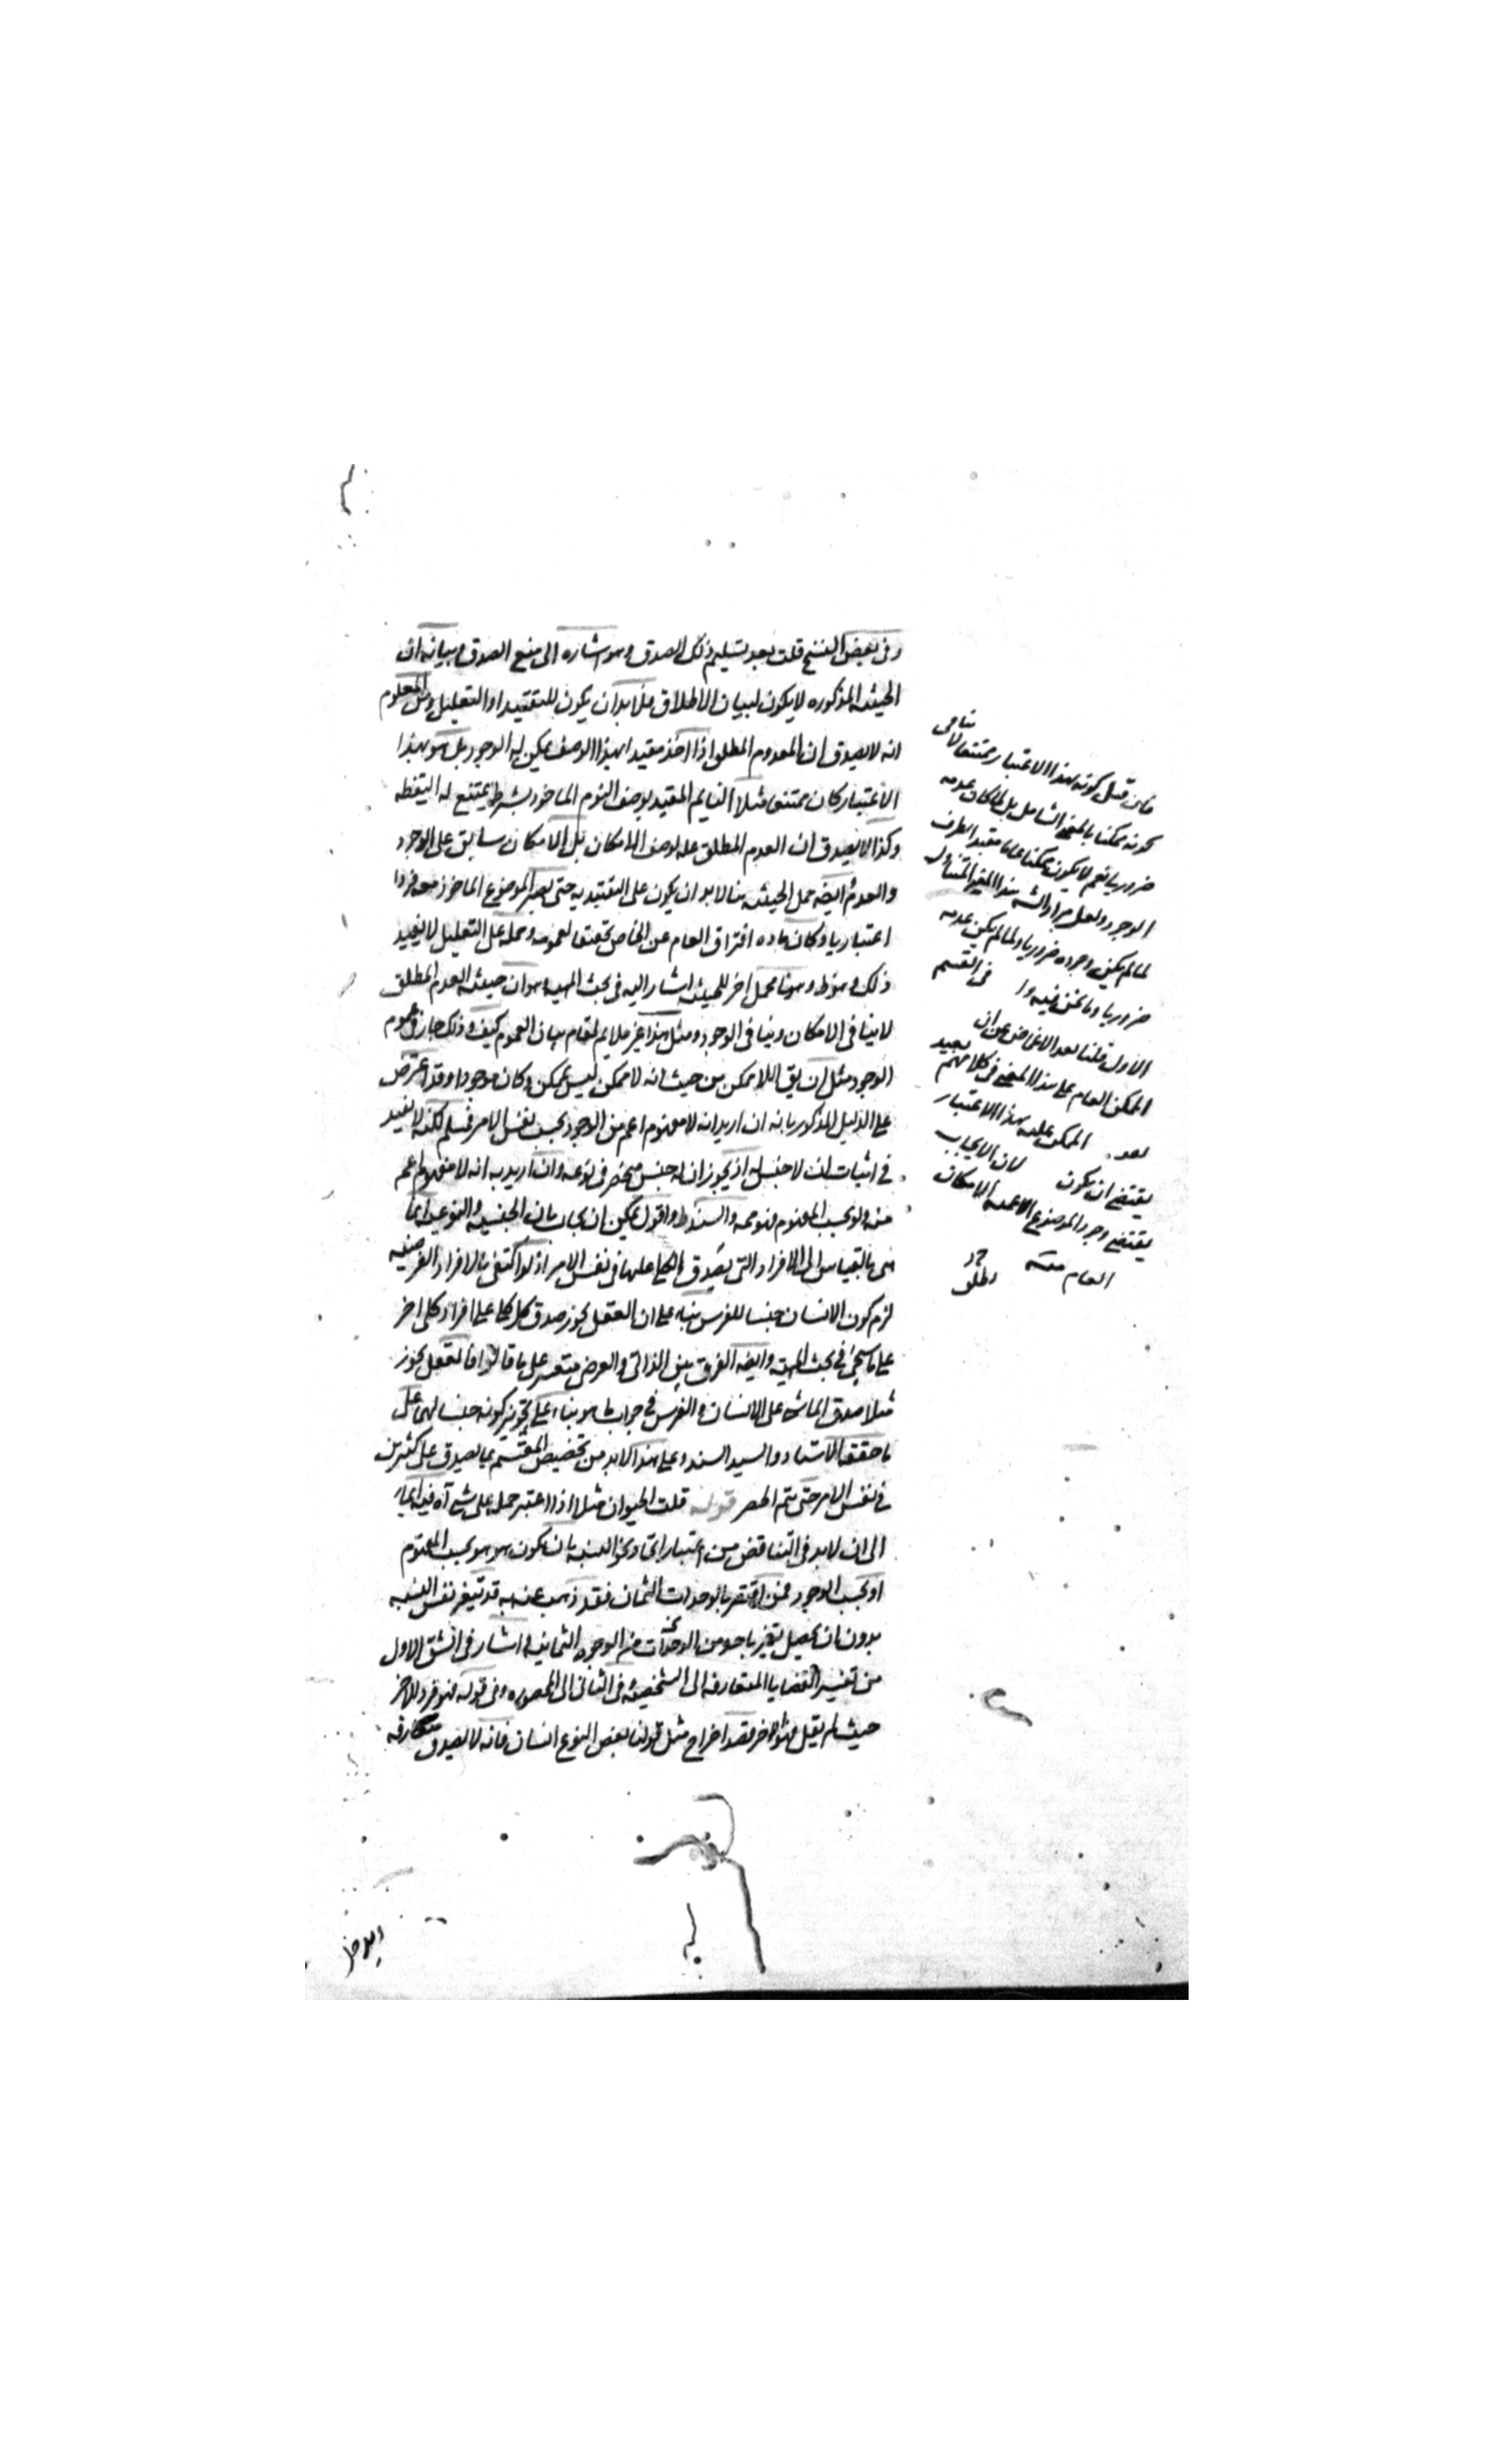 وفى بعض النسخ قلت بعد تسليم ذلك الصدق وهو اشاره الى منع الصدق وبيانه ان
الحيثيه المذكوره لا يكون لبيان الاطلاق فلا بد ان يكون للتقييد او التعليل ومن المعلوم
انه لا يصدق ان المعدوم المطلق اذا اخذ مقيدا بهذا الوصف يمكن له الوجود بل هو بهذا
الاعتبار كان ممتنعا مثلا النايم المقيد بوصف النوم الماخوذ بشرطه يمتنع له اليقظه
وكذا لا يصدق ان العدم المطلق عله لوصف الامكان بل الامكان سابق على الوجود
والعدم ايضه حمل الحيثيه هنا لا بد ان يكون على التقييديه حتى يصير الموضوع الماخوذ معه فردا
اعتباريا وكان ماده افتراق العام عن الخاص تحقيقا لعمومه وحمله على التعليل لا يفيد
ذلك وهو ظ وههنا محمل اخر للحيثيه اشار اليه فى بحث المهيه وهو ان حيثيه العدم المطلق
لا ينافى الامكان وينافى الوجود ومثل هذا غير ملايم لمقام بيان العموم كيف وذلك جار فى عموم
الوجود مثل ان يق اللاممكن من حيث انه لاممكن ليس بممكن وكان موجودا وقد اعترض
على الدليل المذكور بانه ان اريد انه لا مفهوم اعم من الوجود بحسب نفس الامر فمسلم لكنه لا يفيد
فى اثبات ان لا جنس له اذ يجوز ان له جنس منحصر فى نوعه وان اريد به انه لا مفهوم اعم
منه ولو بحسب المفهوم فهو مم والسند ظ واقول يمكن ان يجاب بان الجنسيه والنوعيه انما
هى بالقياس الى الافراد التى يصدق الكلى عليها فى نفس الامر اذ لو اكتفى بالافراد الفرضيه
لزم كون الانسان جنسا للفرس بناء على ان العقل يجوز صدق كل كلى على افراد كلى اخر
على ما سيجئ فى بحث المهيه وايضه الفرق بين الذاتى والعرضى متعسر على ما قالوا فالعقل يجوز
مثلا صدق الماشى على الانسان والفرس فى جواب ما هو بناء على تجويز كونه جنسا لهما على
ما حققه الاستاد والسيد السند وعلى هذا لا بد من تخصيص المقسم بما يصدق على كثيرين
فى نفس الامر حتى يتم الحصر قوله قلت الحيوان مثلا اذا اعتبر حمله على شى آه فيه ايماء
الى ان لا بد فى التناقض من اعتبار اتحاد نحو النسبه بان يكون هو هو بحسب المفهوم
او بحسب الوجود فمن اقتصر بالوحدات الثمان فقد ذهب عنه به قد تتغير نفس النسبه
بدون ان يحصل تغير باحد من الوحدات من الوجوه الثمانيه واشار فى الشق الاول
من تفسير القضايا المتعارفه الى الشخصيه وفى الثانى الى المحصوره وفى قوله هو فرد للاخر
حيث لم يقل هو الاخر قصد اخراج مثل قولنا بعض النوع انسان فانه لا يصدق متعارفه
فان قيل كونه بهذا الاعتبار ممتنعا لا ينافى
كونه ممكنا بالمعنى الشامل بل لما كان عدمه
ضروريا نعم لا يكون ممكنا عاما مقيدا بطرف
الوجود ولعل مراد الشه هذا المعنى المتناول
لما لم يكن وجوده ضروريا ولما لم يكن عدمه
ضروريا وما نحن فيه فى القسم
الاول قلنا بعد الاغماض عن ان
الممكن العام على هذا المعنى فى كلامهم بعيد
الممكن عليه بهذا الاعتبار
يقتضى ان يكون لان الايجاب
يقتضى وجود الموضوع الامكان
العام منه